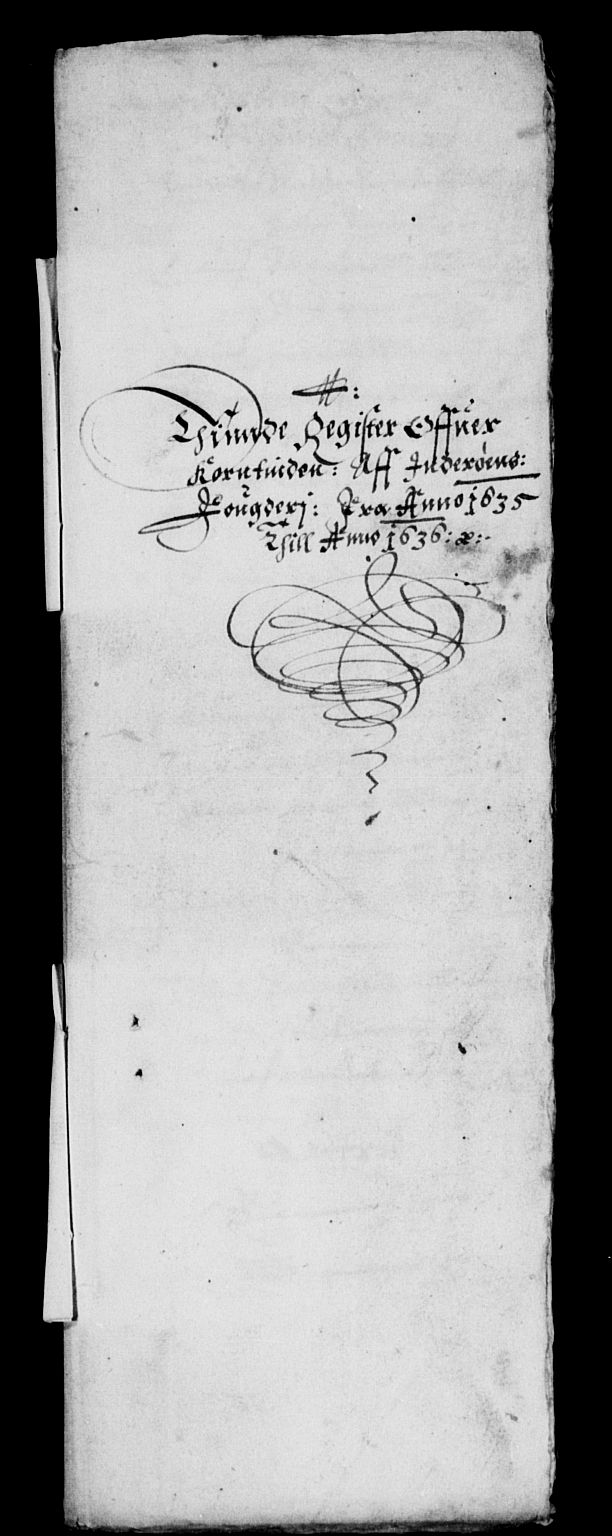 #:
Thiende Register Offuer
Korntinden: Aff Inderøens:
Fougderj: Fra Anno 1635
Thill Anno 1636: